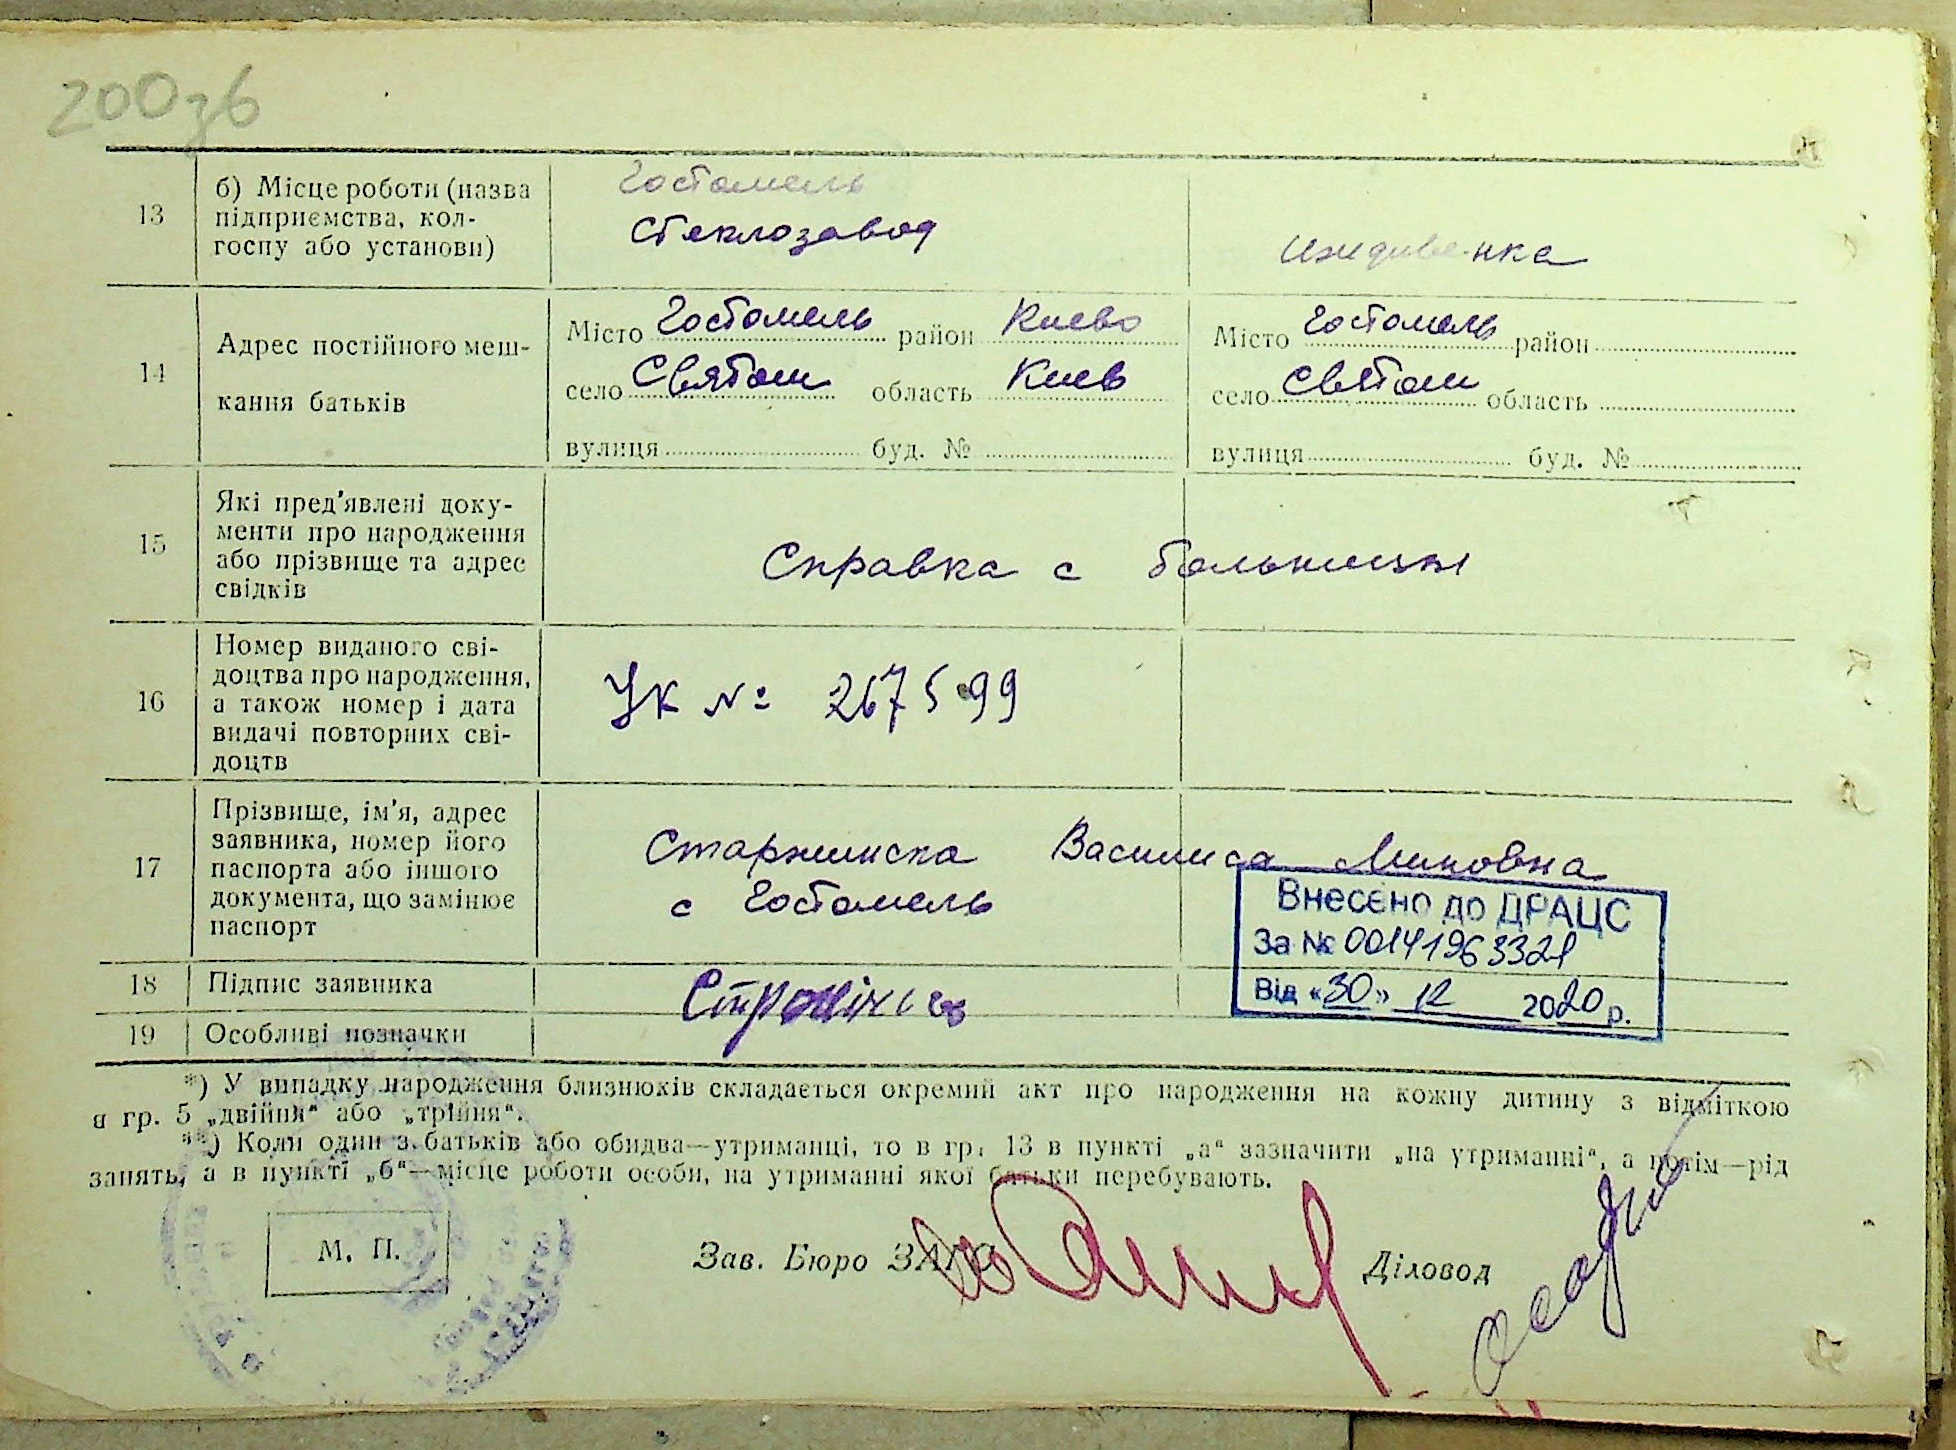 200зв
13
б) Місце роботи (назва
підприємства, кол-
госпу або установи)
Гостомель
Стеклозавод
иждивенка
14
Адрес постійного меш-
кання батьків
Місто Гостомель район Киево
село Святош область Киев
вулиця буд. №
Місто Гостомель район
село Святош область
вулиця буд. №
15
Які пред'явлені доку-
менти про народження
або прізвище та адрес
свідків
Справка с больницы
16
Номер виданого сві-
доцтва про народження,
а також номер і дата
видачі повторних сві-
доцтв
УК № 267599
17
Прізвище, ім'я, адрес
заявника, номер його
паспорта або іншого
документа, що замінює
паспорт
Василиса
с Гостомель
Внесено до ДРАЦС
За № 00141963321
Від «30» 12 2020 р.
18
Підпис заявника
19
Особливі позначки
*) У випадку народження близнюків складається окремий акт про народження на кожну дитину з відміткою
в гр. 5 „двійня“ або „трійня“.
**) Коли один з батьків або обидва—утриманці, то в гр. 13 в пункті „а“ зазначити „на утриманні“, а потім—рід
занять, а в пункті „б“—місце роботи особи, на утриманні якої батьки перебувають.
М. П.
Зав. Бюро ЗАГС
Діловод